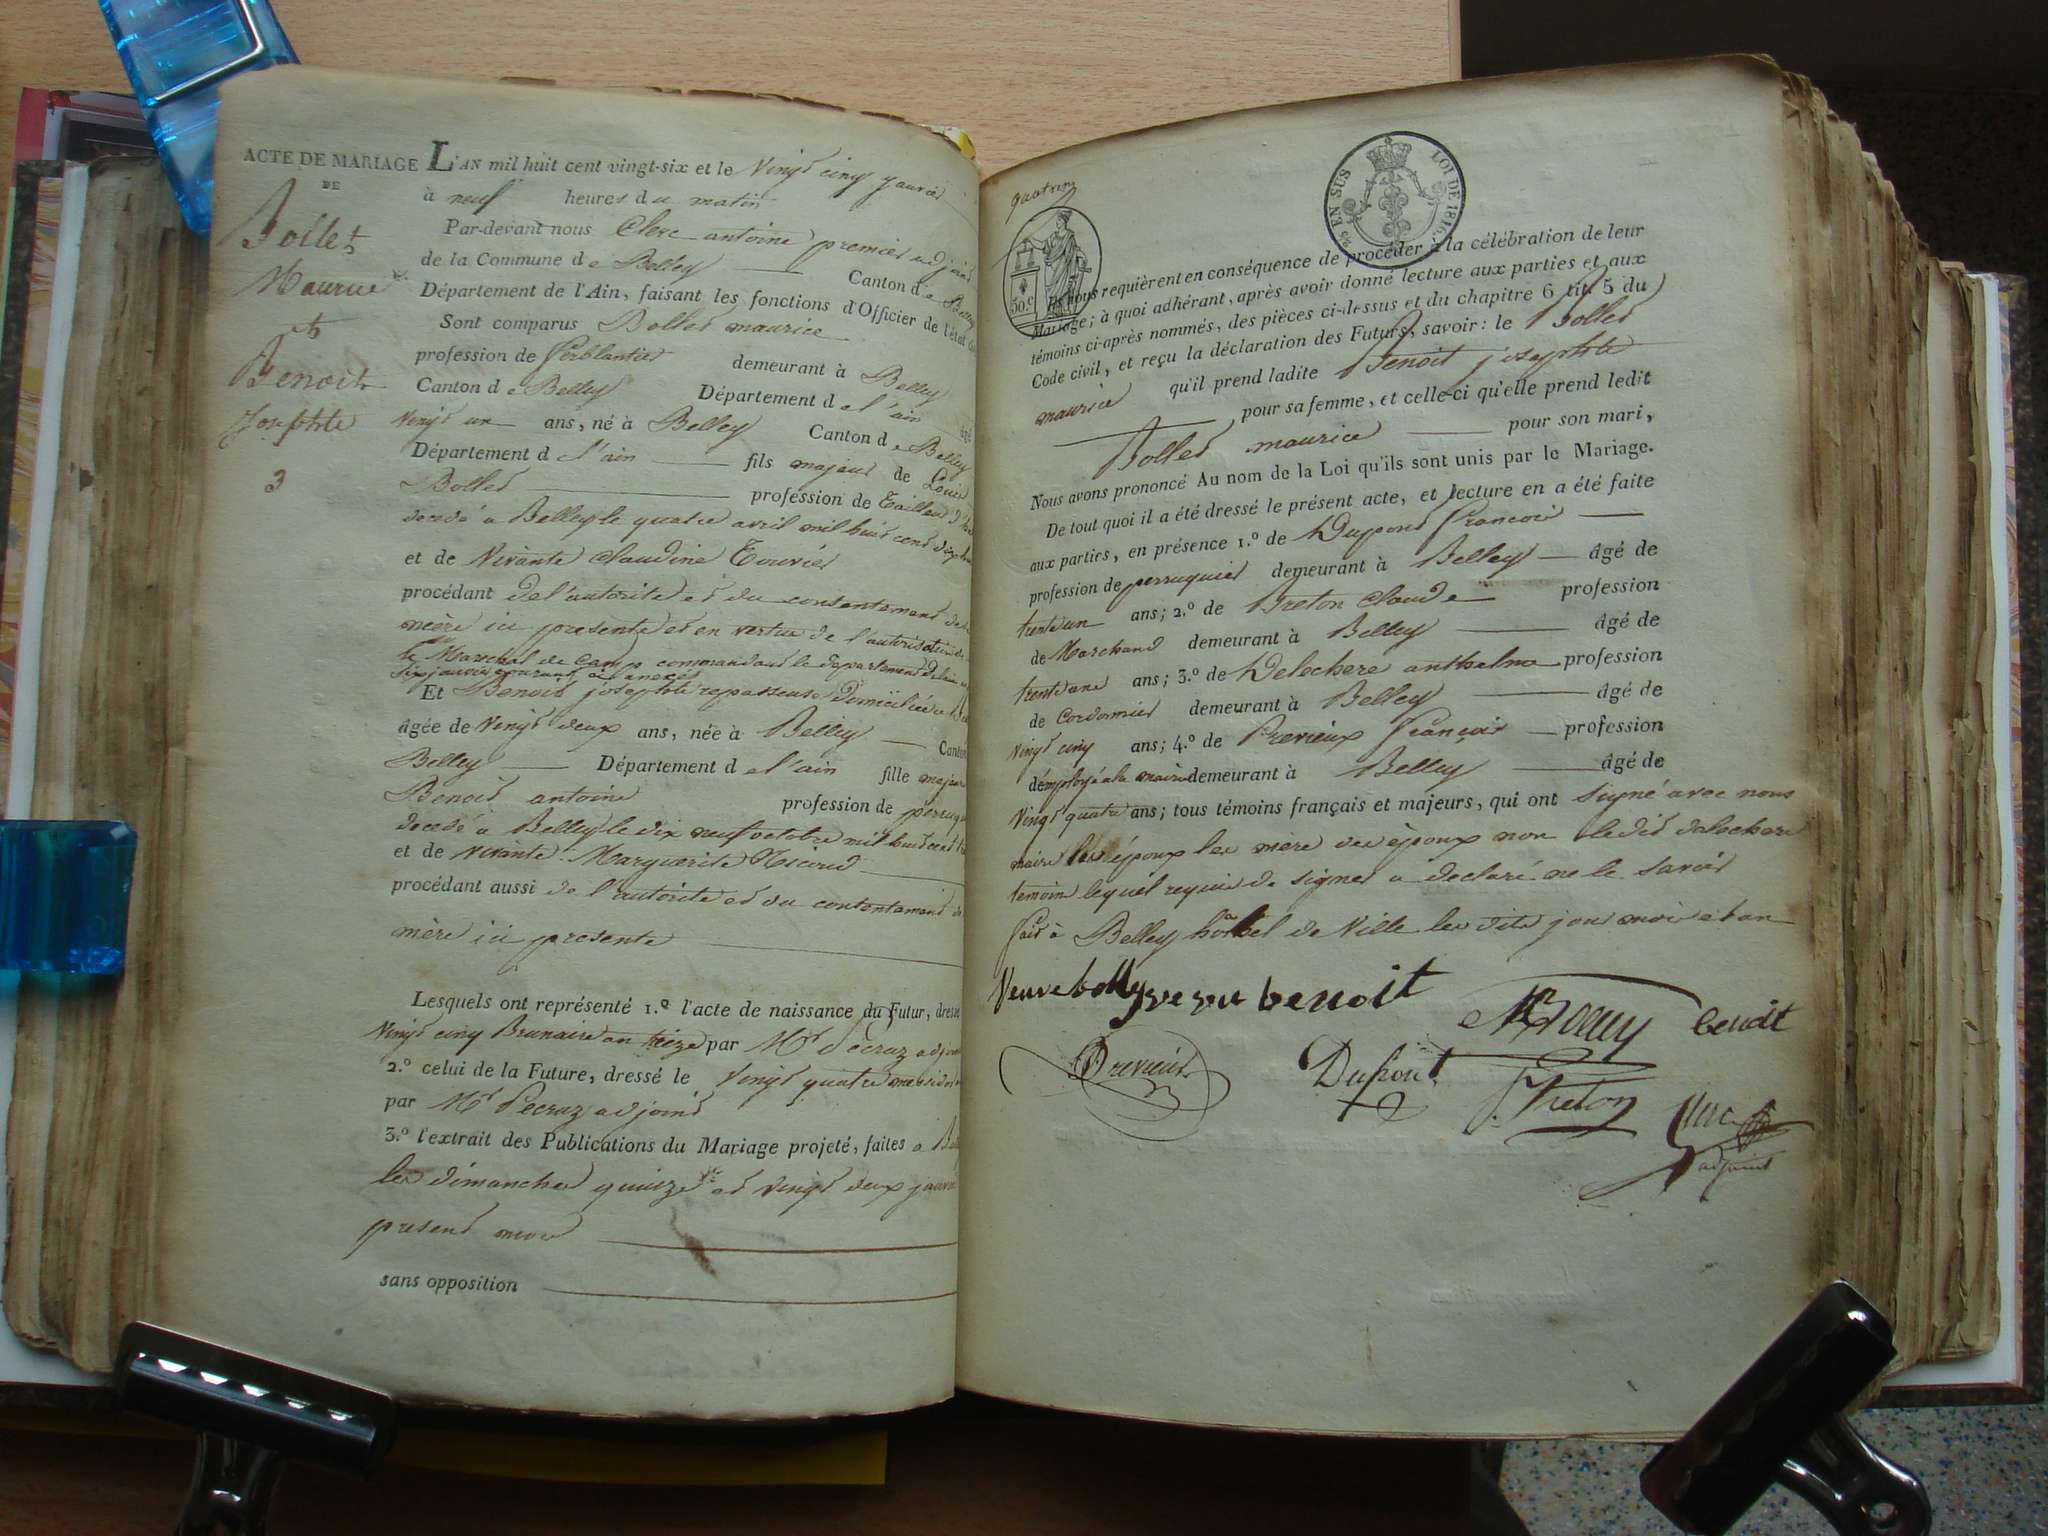 ACTE DE MARIAGE
DE
Bollet
Maurice
et
Benoit
Josephte
3
L'AN mil huit cent vingt-six et le Vingt cinq janvier
à neuf heures du matin
Par-devant nous Clerc antoine premier adjoint
de la Commune de Belley Canton de Belley
Département de l'Ain, faisant les fonctions d'Officier de l'état
Sont comparus Bollet maurice
profession de ferblantier demeurant à Belley
Canton de Belley Département de l'ain âgé
Vingt un ans, né à Belley Canton de Belley
Département de l'ain fils majeur de Louis
Bollet profession de Tailleur
decedé a Belley le quatre avril mil huit cent
et de Vivante Claudine Touvier
procédant de l'autorité et du consentement de
mère ici presente et en vertue de l'autorisation
le Marechal de Camp commandant le departement de l'ain
six janvier courant
Et Benoit josephte repasseuse Domiciliée a
âgée de Vingt deux ans, née à Belley Canton
Belley Département de l'ain fille majeure
Benoit antoine profession de
decedé a Belley le dix neuf octobre mil huit cent
et de vivante Marguerite
procédant aussi de l'autorité et du consentement de
mère ici presente
Lesquels ont représenté 1.º l'acte de naissance du Futur, dressé
Vingt cinq Brumaire an treize par Mr Pecruz adjoint
2.º celui de la Future, dressé le Vingt quatre messidor
par Mr Pecruz adjoint
3.º l'extrait des Publications du Mariage projeté, faites a
les dimanches quinze et vingt deux janvier
present mois
sans opposition
25 EN SUS LOI DE 1816.
50.c
Ils nous requièrent en conséquence de procéder à la célébration de leur
Mariage; à quoi adhérant, après avoir donné lecture aux parties et aux
témoins ci-après nommés, des pièces ci-dessus et du chapitre 6 tit. 5 du
Code civil, et reçu la déclaration des Futurs, savoir: le Bollet
maurice qu'il prend ladite Benoit josephte
pour sa femme, et celle-ci qu'elle prend ledit
Bollet maurice pour son mari,
Nous avons prononcé Au nom de la Loi qu'ils sont unis par le Mariage.
De tout quoi il a été dressé le présent acte, et lecture en a été faite
aux parties, en présence 1.º de Dupont François
profession de perruquier demeurant à Belley âgé de
trente un ans; 2.º de Breton Claude profession
de Marchand demeurant à Belley âgé de
trente ans; 3.º de Delochere anthelme profession
de Cordonnier demeurant à Belley âgé de
Vingt cinq ans; 4.º de Prenieux François profession
d'employé a la mairie demeurant à Belley âgé de
Vingt quatre ans; tous témoins français et majeurs, qui ont signé avec nous
maire les époux les mère des époux non ledit delochere
temoin lequel requis de signer a declaré ne le savoir
fait à Belley hôtel de Ville les dits jour mois et an
Veuve bolley veuve benoit
MBolley benoit
Prenieux Dupont Breton Clerc
adjoint